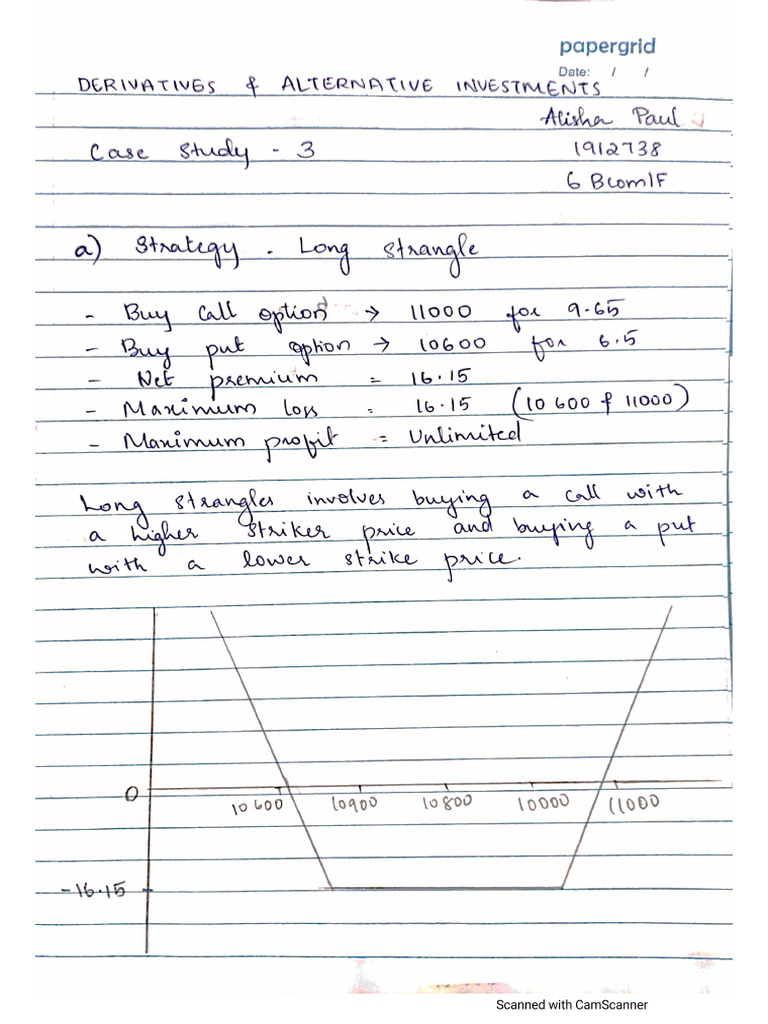 papergrid
Date: / /
DERIVATIVES & ALTERNATIVE INVESTMENTS
Alisha Paul
Case Study - 3
1912738
6 BcomIF
a) Strategy - Long Strangle
- Buy call option → 11000 for 9.65
- Buy put option → 10600 for 6.5
- Net premium = 16.15
- Maximum loss = 16.15 (10600 & 11000)
- Maximum profit = Unlimited
Long strangles involves buying a call with
a higher striker price and buying a put
with a lower strike price.
0
10600 10900 10800 10000 11000
-16.15
Scanned with CamScanner